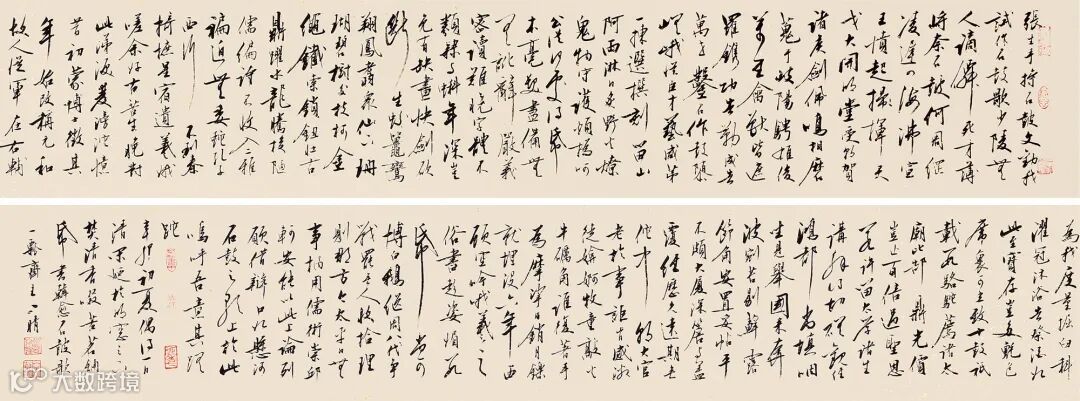 張生手持石鼓文勸我
試作石鼓歌少陵無
人謫仙死才薄
將奈石鼓何周綱
凌遲四海沸宣
王憤起揮天
戈大開明堂受朝賀
諸侯劍佩鳴相磨
蒐于岐陽騁雄俊
萬里禽獸皆遮
羅鐫功勒成告
萬世鑿石作鼓隳
嵯峨從臣才藝咸第
一揀選撰刻留山
阿雨淋日炙野火燎
鬼物守護煩撝呵
公從何處得紙
本毫髮盡備無
差訛辭嚴義
密讀難曉字體不
類隸與蝌年深豈
免有缺畫快劍斫
斷生蛟鼉鸞
翔鳳翥眾仙下珊
瑚碧樹交枝柯金
繩鐵索鎖鈕壯古
鼎躍水龍騰梭陋
儒編詩不收入二雅
褊迫無委蛇孔子
西行不到秦
掎摭星宿遺羲娥
嗟余好古生苦晚對
此涕淚雙滂沱憶
昔初蒙博士徵其
年始改稱元和
故人從軍在右輔
為我度量掘臼科
濯冠沐浴告祭酒如
此至寶存豈多氈包
席裹可立致十鼓祇
載數駱駝薦諸太
廟比郜鼎光價
豈止百倍過聖恩
若許留太學諸生
講解得切磋觀經
鴻都尚填咽
坐見舉國來奔
波剜苔剔蘚露
節角安置妥帖平
不頗大廈深簷與蓋
覆經歷久遠期無
佗中朝大官
老於事詎肯感激
徒媕婀牧童敲火
牛礪角誰復著手
為摩挲日銷月鑠
就埋沒六年西
顧空吟哦羲之
俗書趁姿媚數
紙尚可
博白鵝繼周八代爭
戰罷無人收拾理
則那方今太平日無
事柄用儒術崇丘
軻安能以此上論列
願借辯口如懸河
石鼓之歌止於此
嗚呼吾意其蹉
跎
辛卯初夏偶得
於明窗之下
焚清香啜苦茗
紙書韓愈石鼓歌
一般齋主一晴
大数跨境